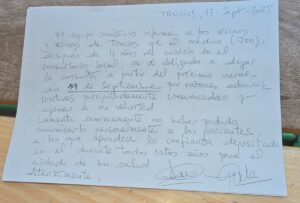 TRUCIOS, 17 - Sept - 2025
El equipo sanitario informa a los vecinos
y vecinas de Trucios que el médico (Jon),
después de 4 años de servicio en el
consultorio local, se ve obligado a dejar
la consulta a partir del próximo viernes
día 19 de Septiembre por razones adminis
trativas precipitadamente comunicadas y
ajenas a su voluntad.
Lamenta sumamente no haber podido
comunicarlo personalmente a los pacientes,
a los que agradece la confianza depositada
en él durante todos estos años para el
cuidado de su salud.
Atentamente,